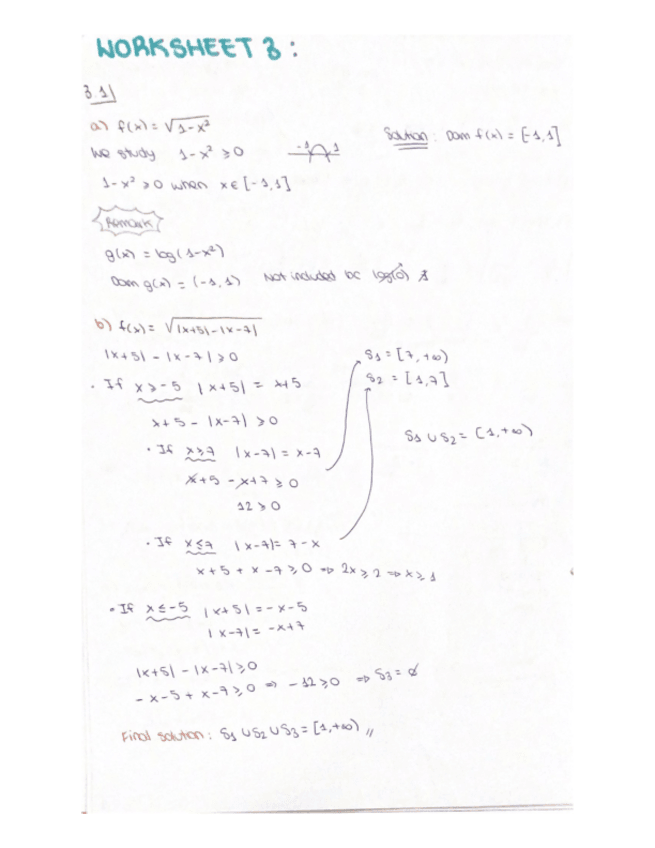 WORKSHEET 3:
3.1|
a) f(x) = √1-x²
Solution: Dom f(x) = [-1,1]
We study 1-x² ≥ 0
-1 1
1-x² ≥ 0 when x ∈ [-1,1]
Remark
g(x) = log(1-x²)
Dom g(x) = (-1,1) Not included bc log(0) ∄
b) f(x) = √|x+5|-|x-7|
|x+5| - |x-7| ≥ 0
S1 = [7,+∞)
S2 = [1,7]
· If x ≥ -5 |x+5| = x+5
x+5 - |x-7| ≥ 0
S1 ∪ S2 = [1,+∞)
· If x≥7 |x-7| = x-7
x+5 - x+7 ≥ 0
12 ≥ 0
· If x≤7 |x-7| = 7-x
x+5 + x-7 ≥ 0 ⇒ 2x ≥ 2 ⇒ x ≥ 1
· If x ≤ -5 |x+5| = -x-5
|x-7| = -x+7
|x+5| - |x-7| ≥ 0
-x-5 + x-7 ≥ 0 ⇒ -12 ≥ 0 ⇒ S3 = ∅
Final solution: S1 ∪ S2 ∪ S3 = [1,+∞) //